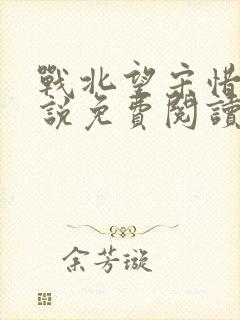 戰北望宋惜
說免費閱讀
余芳璇